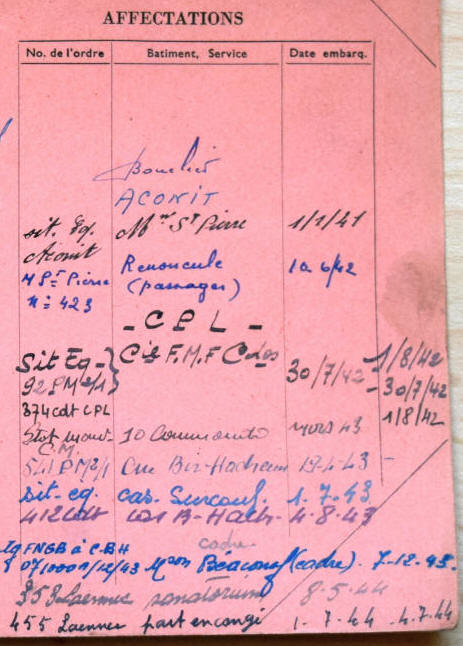 AFFECTATIONS
No. de l'ordre Batiment, Service Date embarq.
Bouclier
ACONIT
sit. Eq. Mon St Pierre 1/1/41
Aconit
M St Pierre Renoncule 10 6/42
n: 423 (passager)
- CPL -
Sit Eq - Cie F.M.F Cdos 30/7/42 1/8/42
92 PM 2/1 - 30/7/42
374 cdt CPL 1/8/42
10 Commando mars 43
C.M.
PM 2/1 Cne Bir-Hacheim 19-4-43 -
sit-eq. cas. Surcouf. 1.7.43
412 cdt cas B-Hach- 4.8.43
cadre
FNGB à C.BH
12/43 Mson (cadre). 7-12-43.
353 Laennec sanatorium 8-5-44
455 Laennec part en congé 1-7-44 4.7.44